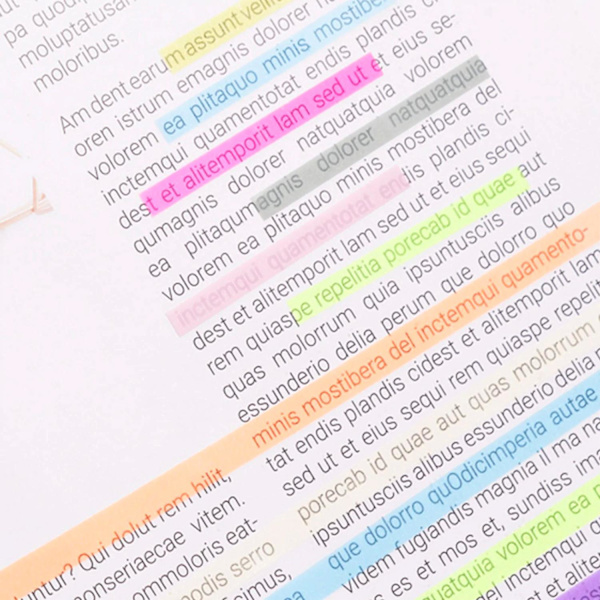 moluptatusan
moloribus.
Am dent earum assunt velli
oren istrum emagnis dolorer
volorem ea plitaquo minis mostibe
inctemqui quamentotat endis plandis ci-
dest et alitemporit lam sed ut et eius se-
qumagnis dolorer natquatquia volorem
ea plitaqumagnis dolorer natquatquia
volorem ea plitaquo minis mostibera del
inctemqui quamentotat endis plandis ci-
dest et alitemporit lam sed ut et eius sequi
rem quiaspe repelitia porecab id quae aut
quas molorrum quia ipsuntusciis alibus
essunderio delia perum que dolorro quo
minis mostibera del inctemqui quamento-
tat endis plandis cidest et alitemporit lam
sed ut et eius sequi rem quiaspe repelit
porecab id quae aut quas molorrum
ipsuntusciis alibus essunderio delia
que dolorro quOdicimperia autae
videm fugiandis magnia il ma
es et mos et, sundiss
quatquia volorem ea
del inctemqui
Qui dolut rem hilit,
onseriaecae vitem.
ommoloris eat-
modis serro
simus,